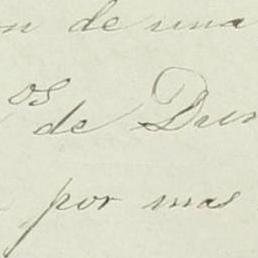 n de una
os de Dun
por mas